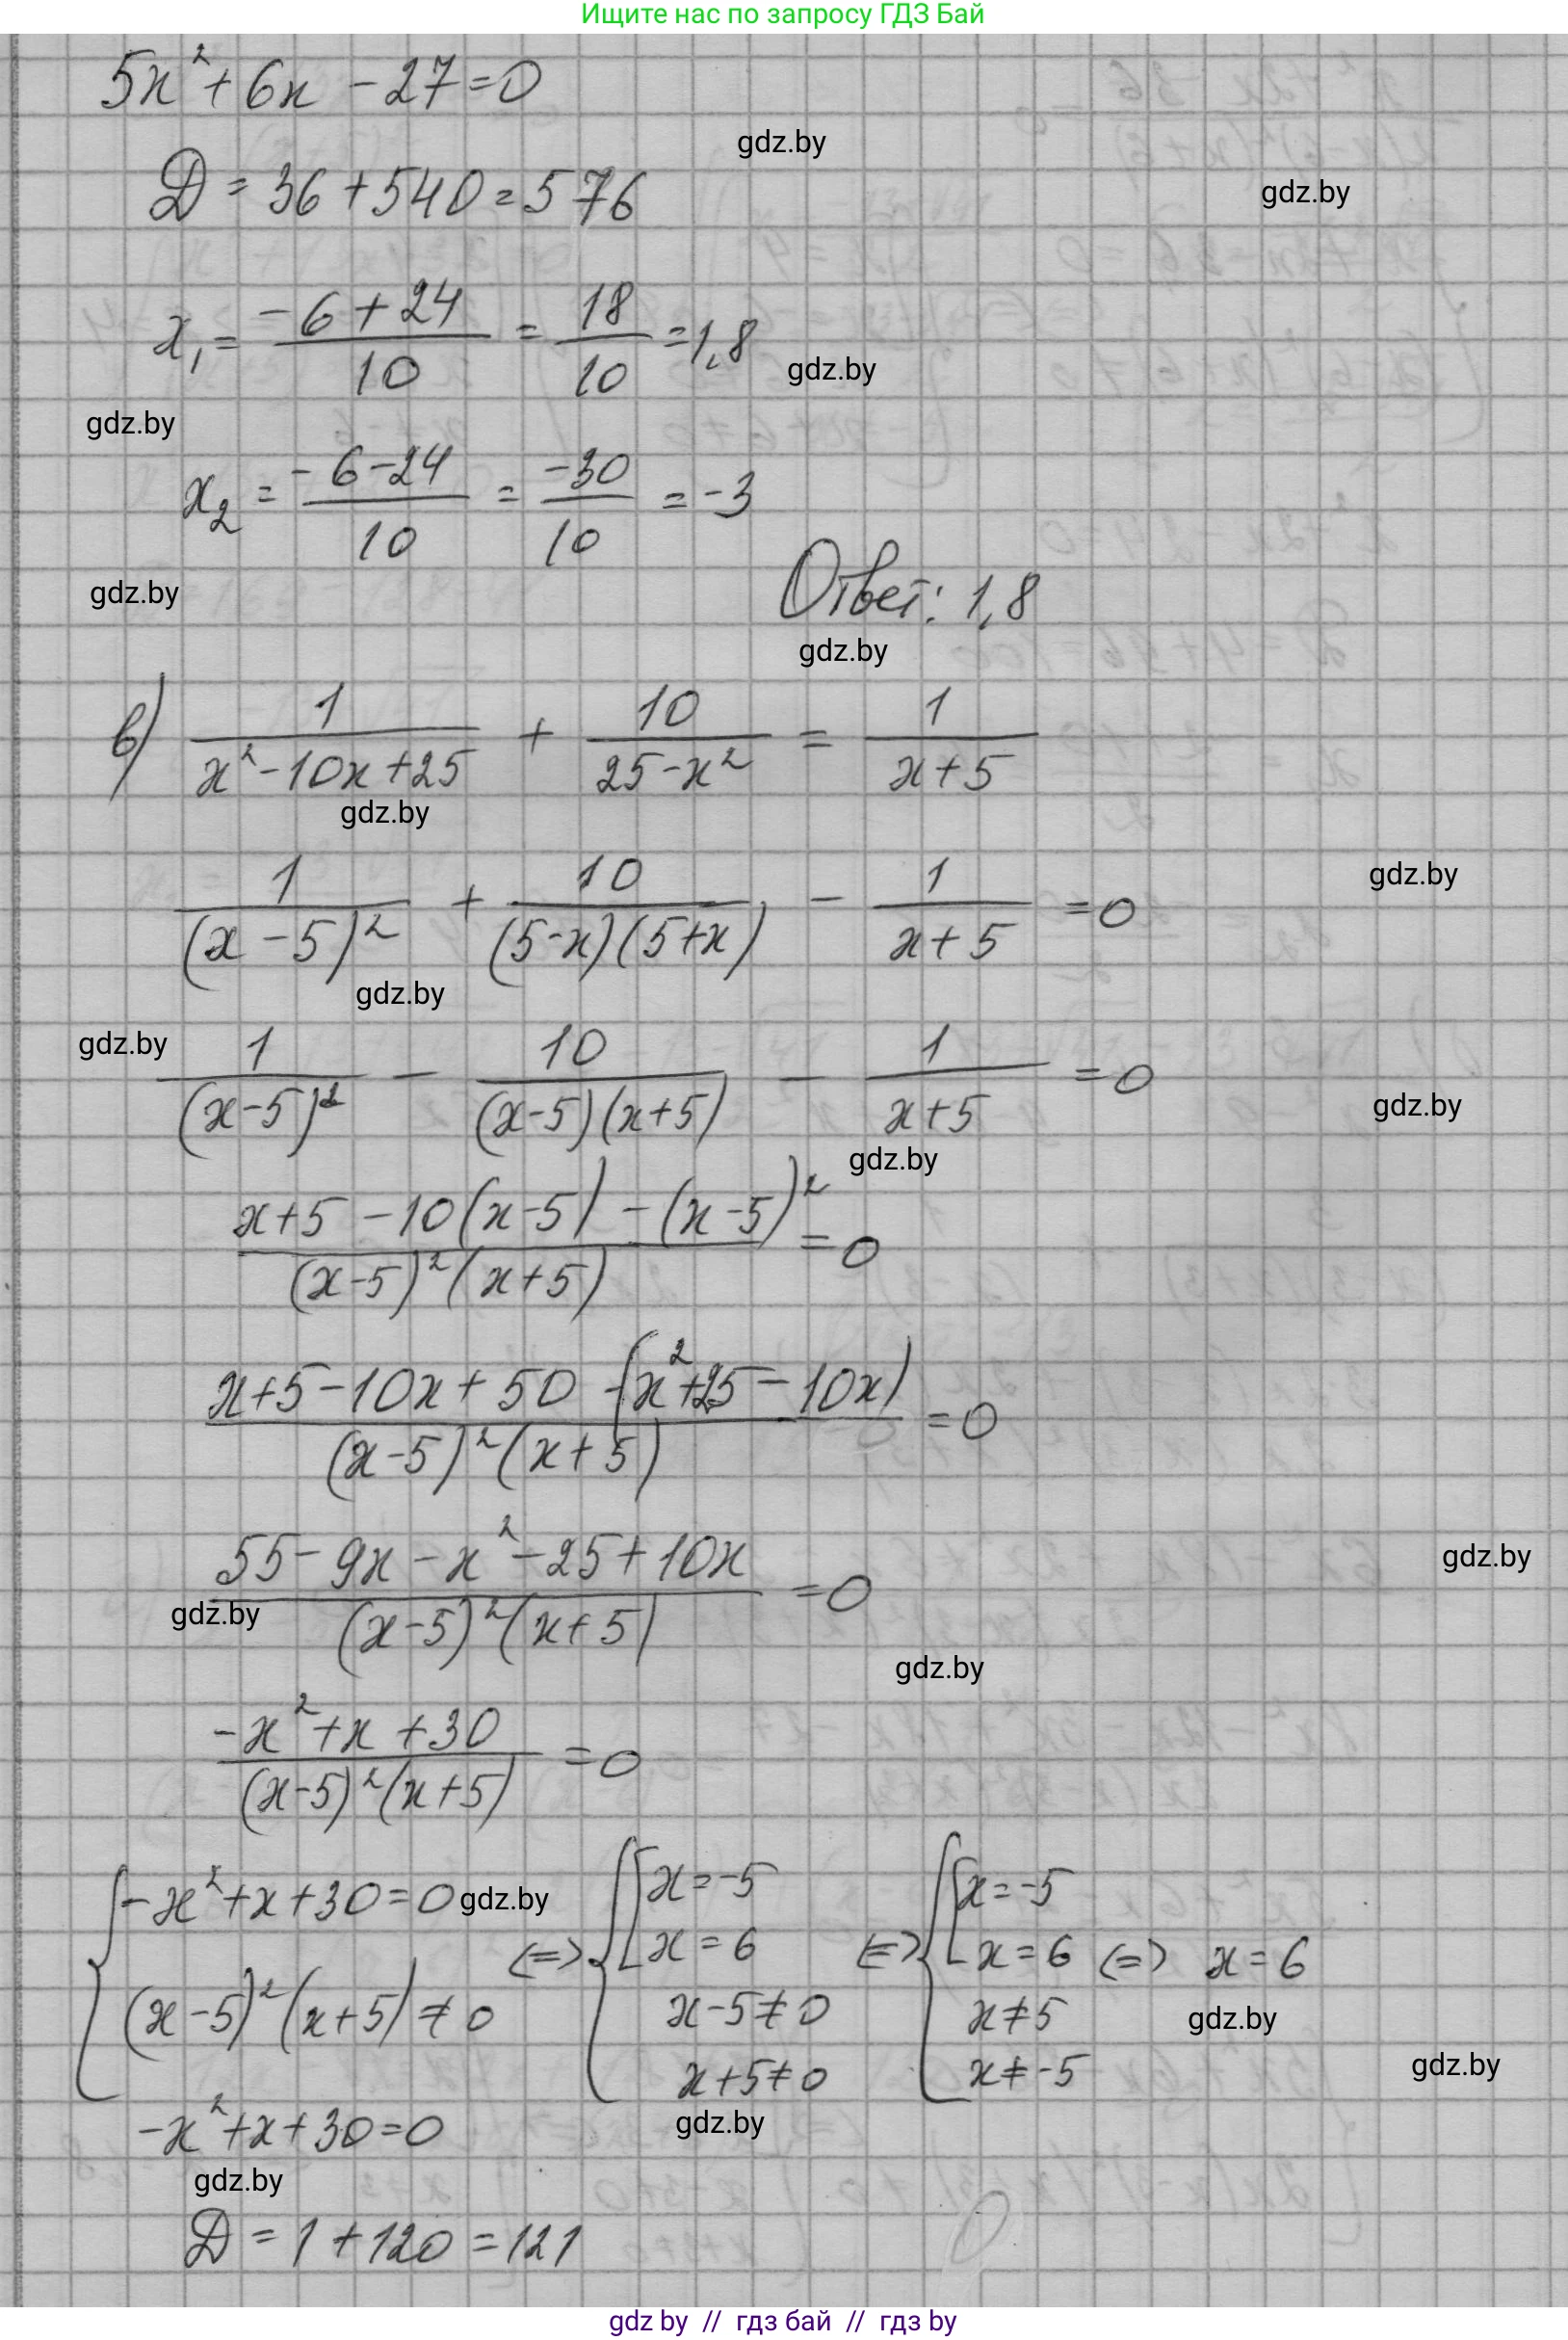 Ищите нас по запросу ГДЗ Бай
5x² + 6x - 27 = 0
gdz.by
Д = 36 + 540 = 576
gdz.by
x₁ = (-6 + 24)/10 = 18/10 = 1,8
gdz.by
gdz.by
x₂ = (-6 - 24)/10 = -30/10 = -3
gdz.by
Ответ: 1,8
gdz.by
в) 1/(x² - 10x + 25) + 10/(25 - x²) = 1/(x + 5)
gdz.by
1/(x - 5)² + 10/((5 - x)(5 + x)) - 1/(x + 5) = 0
gdz.by
gdz.by
gdz.by
1/(x - 5)² - 10/((x - 5)(x + 5)) - 1/(x + 5) = 0
gdz.by
gdz.by
(x + 5 - 10(x - 5) - (x - 5)²)/((x - 5)²(x + 5)) = 0
(x + 5 - 10x + 50 - (x² + 25 - 10x))/((x - 5)²(x + 5)) = 0
(55 - 9x - x² - 25 + 10x)/((x - 5)²(x + 5)) = 0
gdz.by
gdz.by
gdz.by
(-x² + x + 30)/((x - 5)²(x + 5)) = 0
{ -x² + x + 30 = 0 gdz.by
(x - 5)²(x + 5) ≠ 0
<=> { [ x = -5
x = 6
x - 5 ≠ 0
x + 5 ≠ 0
<=> { [ x = -5
x = 6
x ≠ 5
x ≠ -5
<=> x = 6
gdz.by
gdz.by
gdz.by
-x² + x + 30 = 0
gdz.by
Д = 1 + 120 = 121
gdz by // гдз бай // гдз by